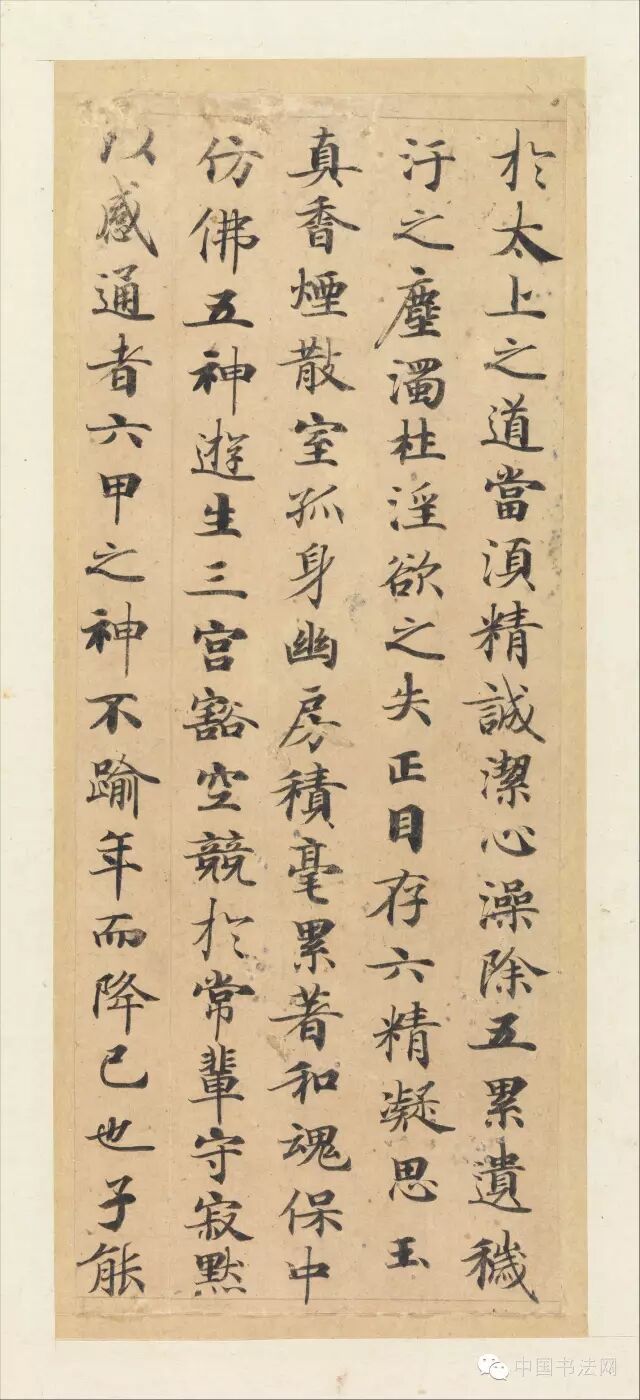 於太上之道當湏精誠潔心澡除五累遺穢
汙之塵濁杜淫欲之失正目存六精凝思玉
真香煙散室孤身幽房積毫累著和魂保中
仿佛五神遊生三宮豁空競於常輩守寂默
以感通者六甲之神不踰年而降己也子能
中国书法网